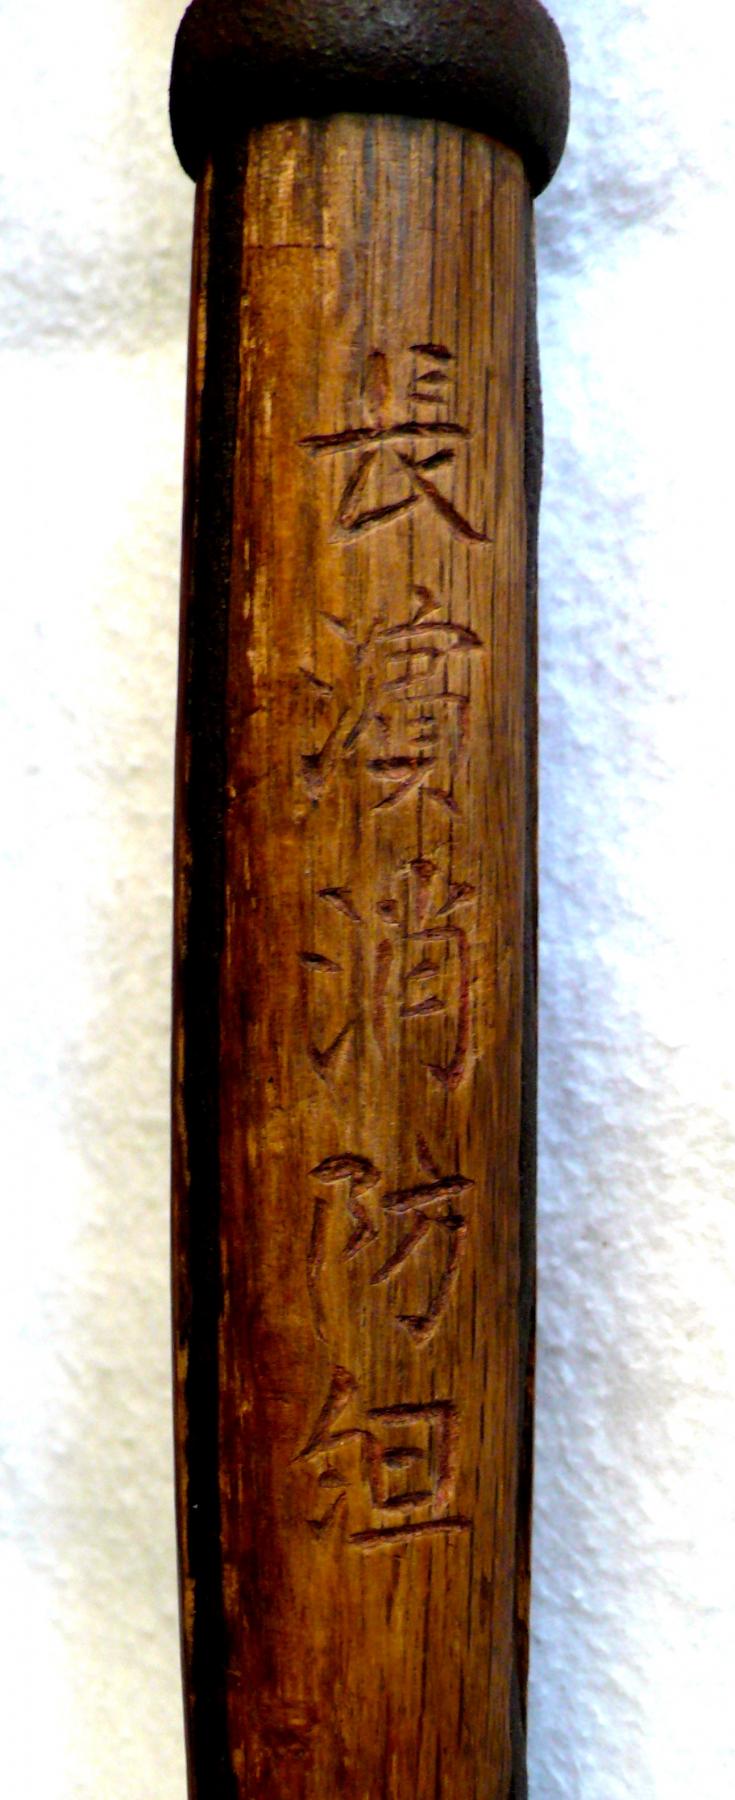 長濱消防組